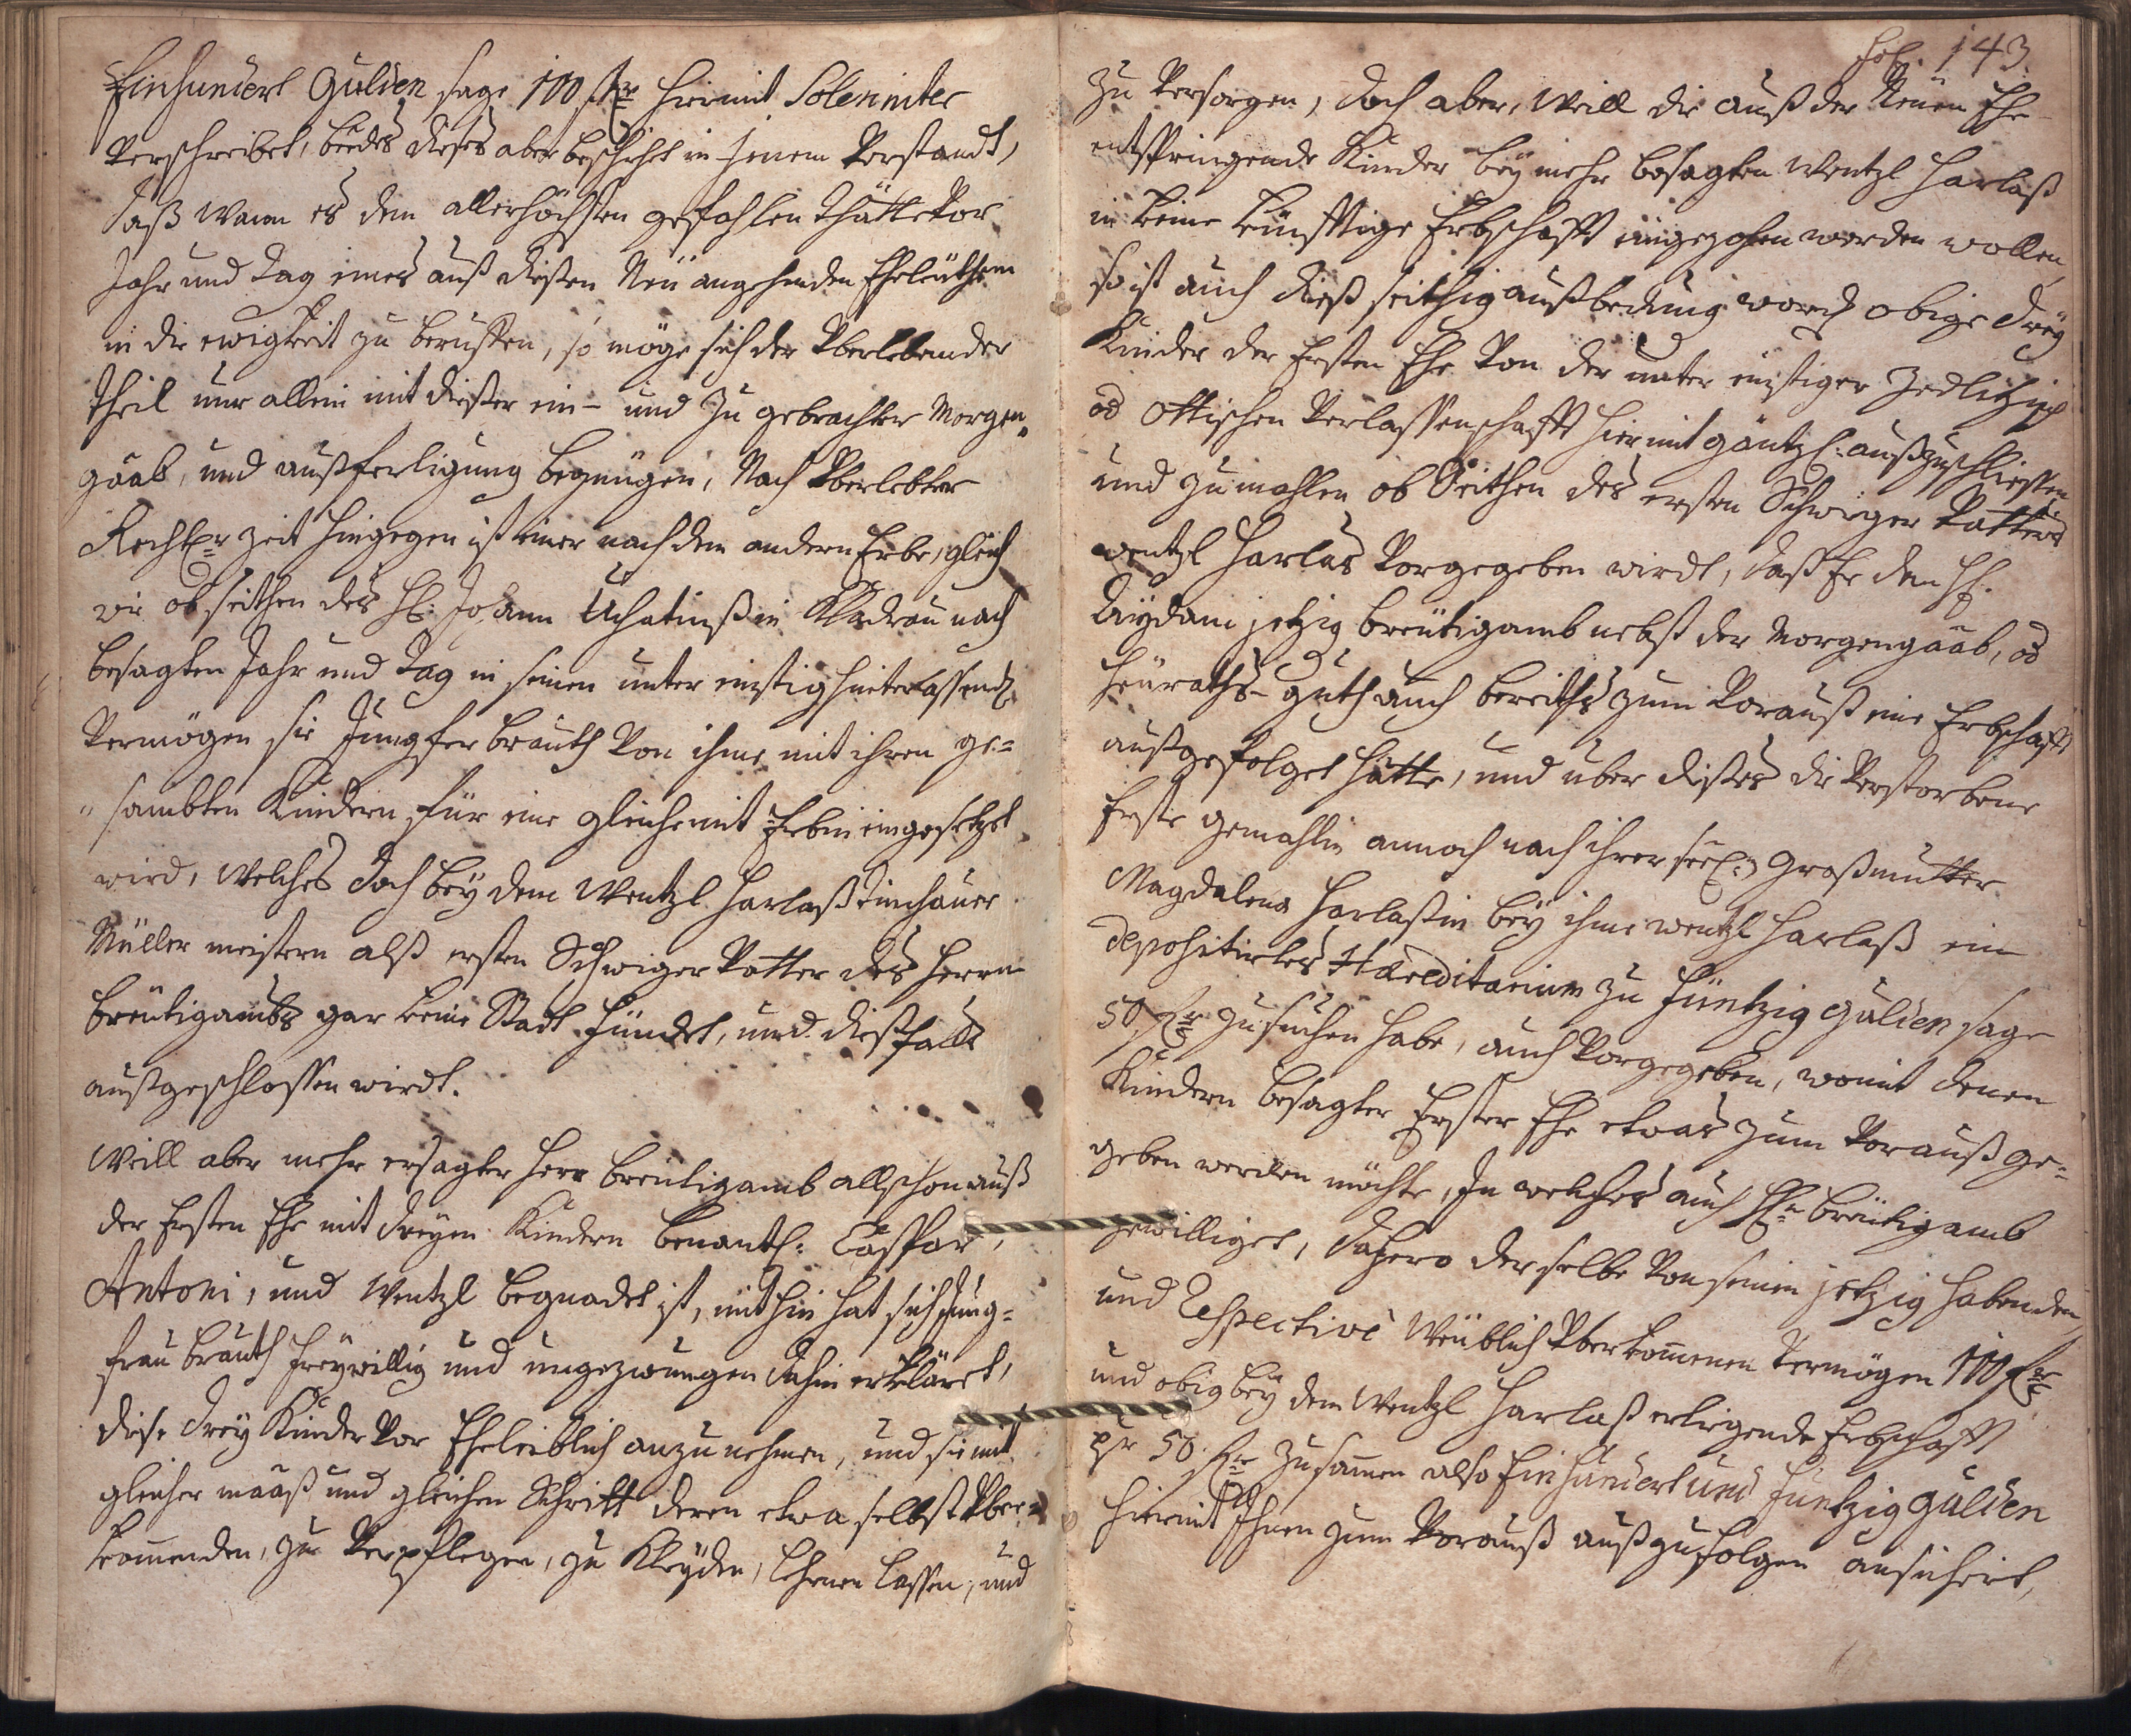 Einhundert Gulden sage 100 fl hiermit Solenniter
Verschreibet, beedes dieses aber beschihet in jenem Verstandt,
daß wann es dem allerhöchsten gefahlen thätte Vor
Jahr und Tag eines auß diesen Neü angehenden Eheleüthen
in die ewigkeit zu beruffen, so möge sich der Überlebender
theil nur allein mit dieser ein- und Zu gebrachter Morgen„
gaab, und außferligung begnügen, Nach Überlebter
Rechter zeit hingegen ist einer nach dem andern Erbe, gleich
wie ob seithen des H: Johann Uchatius in Kladrau nach
besagten Jahr und Tag in seinen unter einstig hinterlassend
Vermögen sie Jungfer brauth Von ihme mit ihren ge=
„sambten Kindern für eine gleiche mit Erbin eingesetzet
wird, Welches doch beÿ dem Wentzl Harlaß Tinchauer
Müller meistern alß ersten Schwiger Vatter des Herrn
breütigambs gar keine Statt fündet, und dießfalls
außgeschlossen wirdt.
Weill aber mehr ersagter Herr breütigamb allschon auß
der Ersten Ehe mit dreÿen Kindern benantl: Caspar,
Antoni, und Wentzl begnadet ist, mithin hat sich Jung=
frau brauth freÿwillig und ungezwungen dahin erkläret,
diese dreÿ Kinder Vor Eheleiblich anzunehmen, und sie mit
gleicher maaß und gleichen Schritt deren etwa selbst Über=
kommenden, zu Verpflegen, zu Kleÿden, lehrnen lassen, und
fol. 143
zu Versorgen, doch aber, Weill die auß der Neüen Ehe
entspringende Kinder beÿ mehr besagten Wentzl Harlaß
in keine künfftige Erbschafft eingezohen werden wollen,
so ist auch dieß seithig außbedung word obige dreÿ
Kinder der Ersten Ehe Von der unter einstiger Zedlitzisch
od Ottischen Verlassenschafft hiermit gäntzl: außzuschliessen
und zumahlen ob Seithen des ersten Schwiger Vatters
Wentzl Harlas Vorgegeben wirdt, daß Er dem H:
Aÿdam jetzig breütigamb nebst der Morgengaab, od
Heüraths-guth auch bereiths zum Vorauß eine Erbschafft
außgefolget hätte, und über dieses die Verstorbene
Erste gemahlin annoch nach ihrer seel: Großmutter
Magdalena Harlaßin beÿ ihme Wentzl Harlaß ein
depositirtes Hæreditarium zu Füntzig Gulden sage
50 fl zu suchen habe, auch Vorgegeben, womit denen
Kindern besagter Erster Ehe etwas zum Vorauß ge=
geben werden möchte, In welches auch H: breütigamb
gewilliget, dahero derselbe Von seinem jetzig habenden,
und Respective Weüblich Überkommenen Vermögen 100 fl
und obig beÿ dem Wentzl Harlaß erligende Erbschafft
pr 50 fl zusammen also Einhundert und Funtzig Gulden
hiermit Ihnen zum Vorauß außzufolgen ansichert,